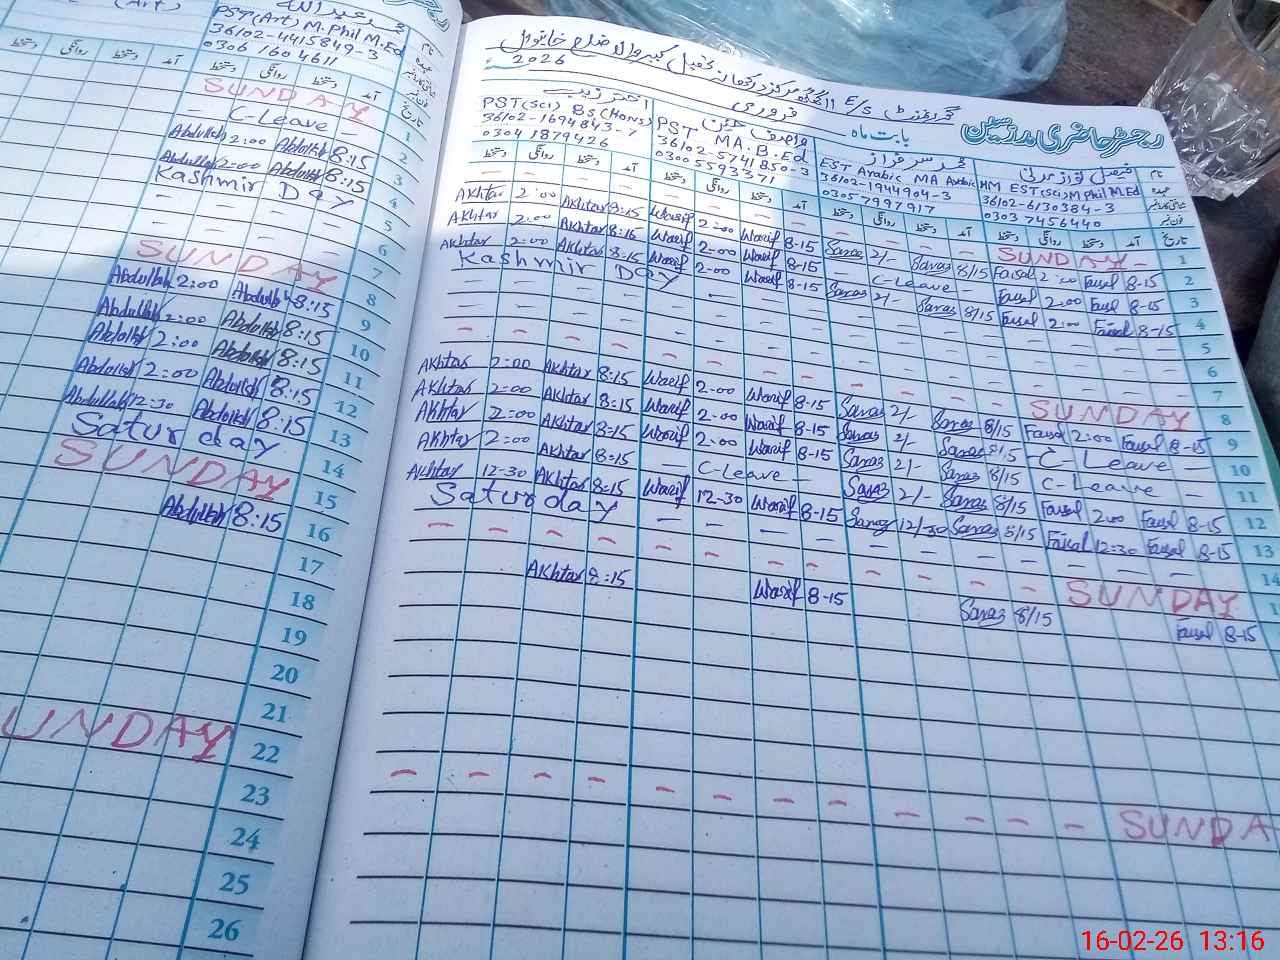 (Art)
PST (Art) M.Phil M.Ed
36102-4415849-3
0306 1604611
دستخط روانگی دستخط آمد
SUNDAY 1
— C-Leave — 2
Abdullah 2:00 Abdullah 8:15 3
Abdullah 2:00 Abdullah 8:15 4
Kashmir Day 5
6
7
SUNDAY 8
Abdullah 2:00 Abdullah 8:15 9
Abdullah 2:00 Abdullah 8:15 10
Abdullah 2:00 Abdullah 8:15 11
Abdullah 2:00 Abdullah 8:15 12
Abdullah 12-30 Abdullah 8:15 13
Saturday 14
SUNDAY 15
Abdullah 8:15 16
17
18
19
20
21
UNDAY 22
23
24
25
26
رجسٹر حاضری مدرسین
بابت ماہ فروری 2026
اختر زیب
PST (Sci) BS (Hons)
36102-1694843-7
0304 1879426
واصف حسین
PST MA. B.Ed
36102-5741850-3
0300 5593371
محمد سرفراز
EST Arabic MA Arabic
36102-1944904-3
0305 7997917
HM EST (Sci) M Phil M.Ed
36102-6130384-3
0303 7456440
دستخط روانگی دستخط آمد دستخط روانگی دستخط آمد دستخط روانگی دستخط آمد دستخط روانگی دستخط آمد تاریخ
SUNDAY 1
Akhtar 2:00 Akhtar 8:15 Wasif 2-00 Wasif 8-15 Saraz 2/- Saraz 8/15 Faisal 2:00 Faisal 8-15 2
Akhtar 2:00 Akhtar 8:15 Wasif 2-00 Wasif 8-15 — C-Leave — Faisal 2:00 Faisal 8-15 3
Akhtar 2:00 Akhtar 8:15 Wasif 2-00 Wasif 8-15 Saraz 2/- Saraz 8/15 Faisal 2:00 Faisal 8-15 4
Kashmir Day 5
6
7
SUNDAY 8
Akhtar 2:00 Akhtar 8:15 Wasif 2-00 Wasif 8-15 Saraz 2/- Saraz 8/15 Faisal 2:00 Faisal 8-15 9
Akhtar 2:00 Akhtar 8:15 Wasif 2-00 Wasif 8-15 Saraz 2/- Saraz 8/15 C-Leave — 10
Akhtar 2:00 Akhtar 8:15 Wasif 2-00 Wasif 8-15 Saraz 2/- Saraz 8/15 C-Leave — 11
Akhtar 2:00 Akhtar 8:15 — C-Leave — Saraz 2/- Saraz 8/15 Faisal 2:00 Faisal 8-15 12
Akhtar 12-30 Akhtar 8:15 Wasif 12-30 Wasif 8-15 Saraz 12/30 Saraz 8/15 Faisal 12:30 Faisal 8-15 13
Saturday 14
SUNDAY 1
Akhtar 8:15 Wasif 8-15 Saraz 8/15 Faisal 8-15
SUNDA
16-02-26 13:16